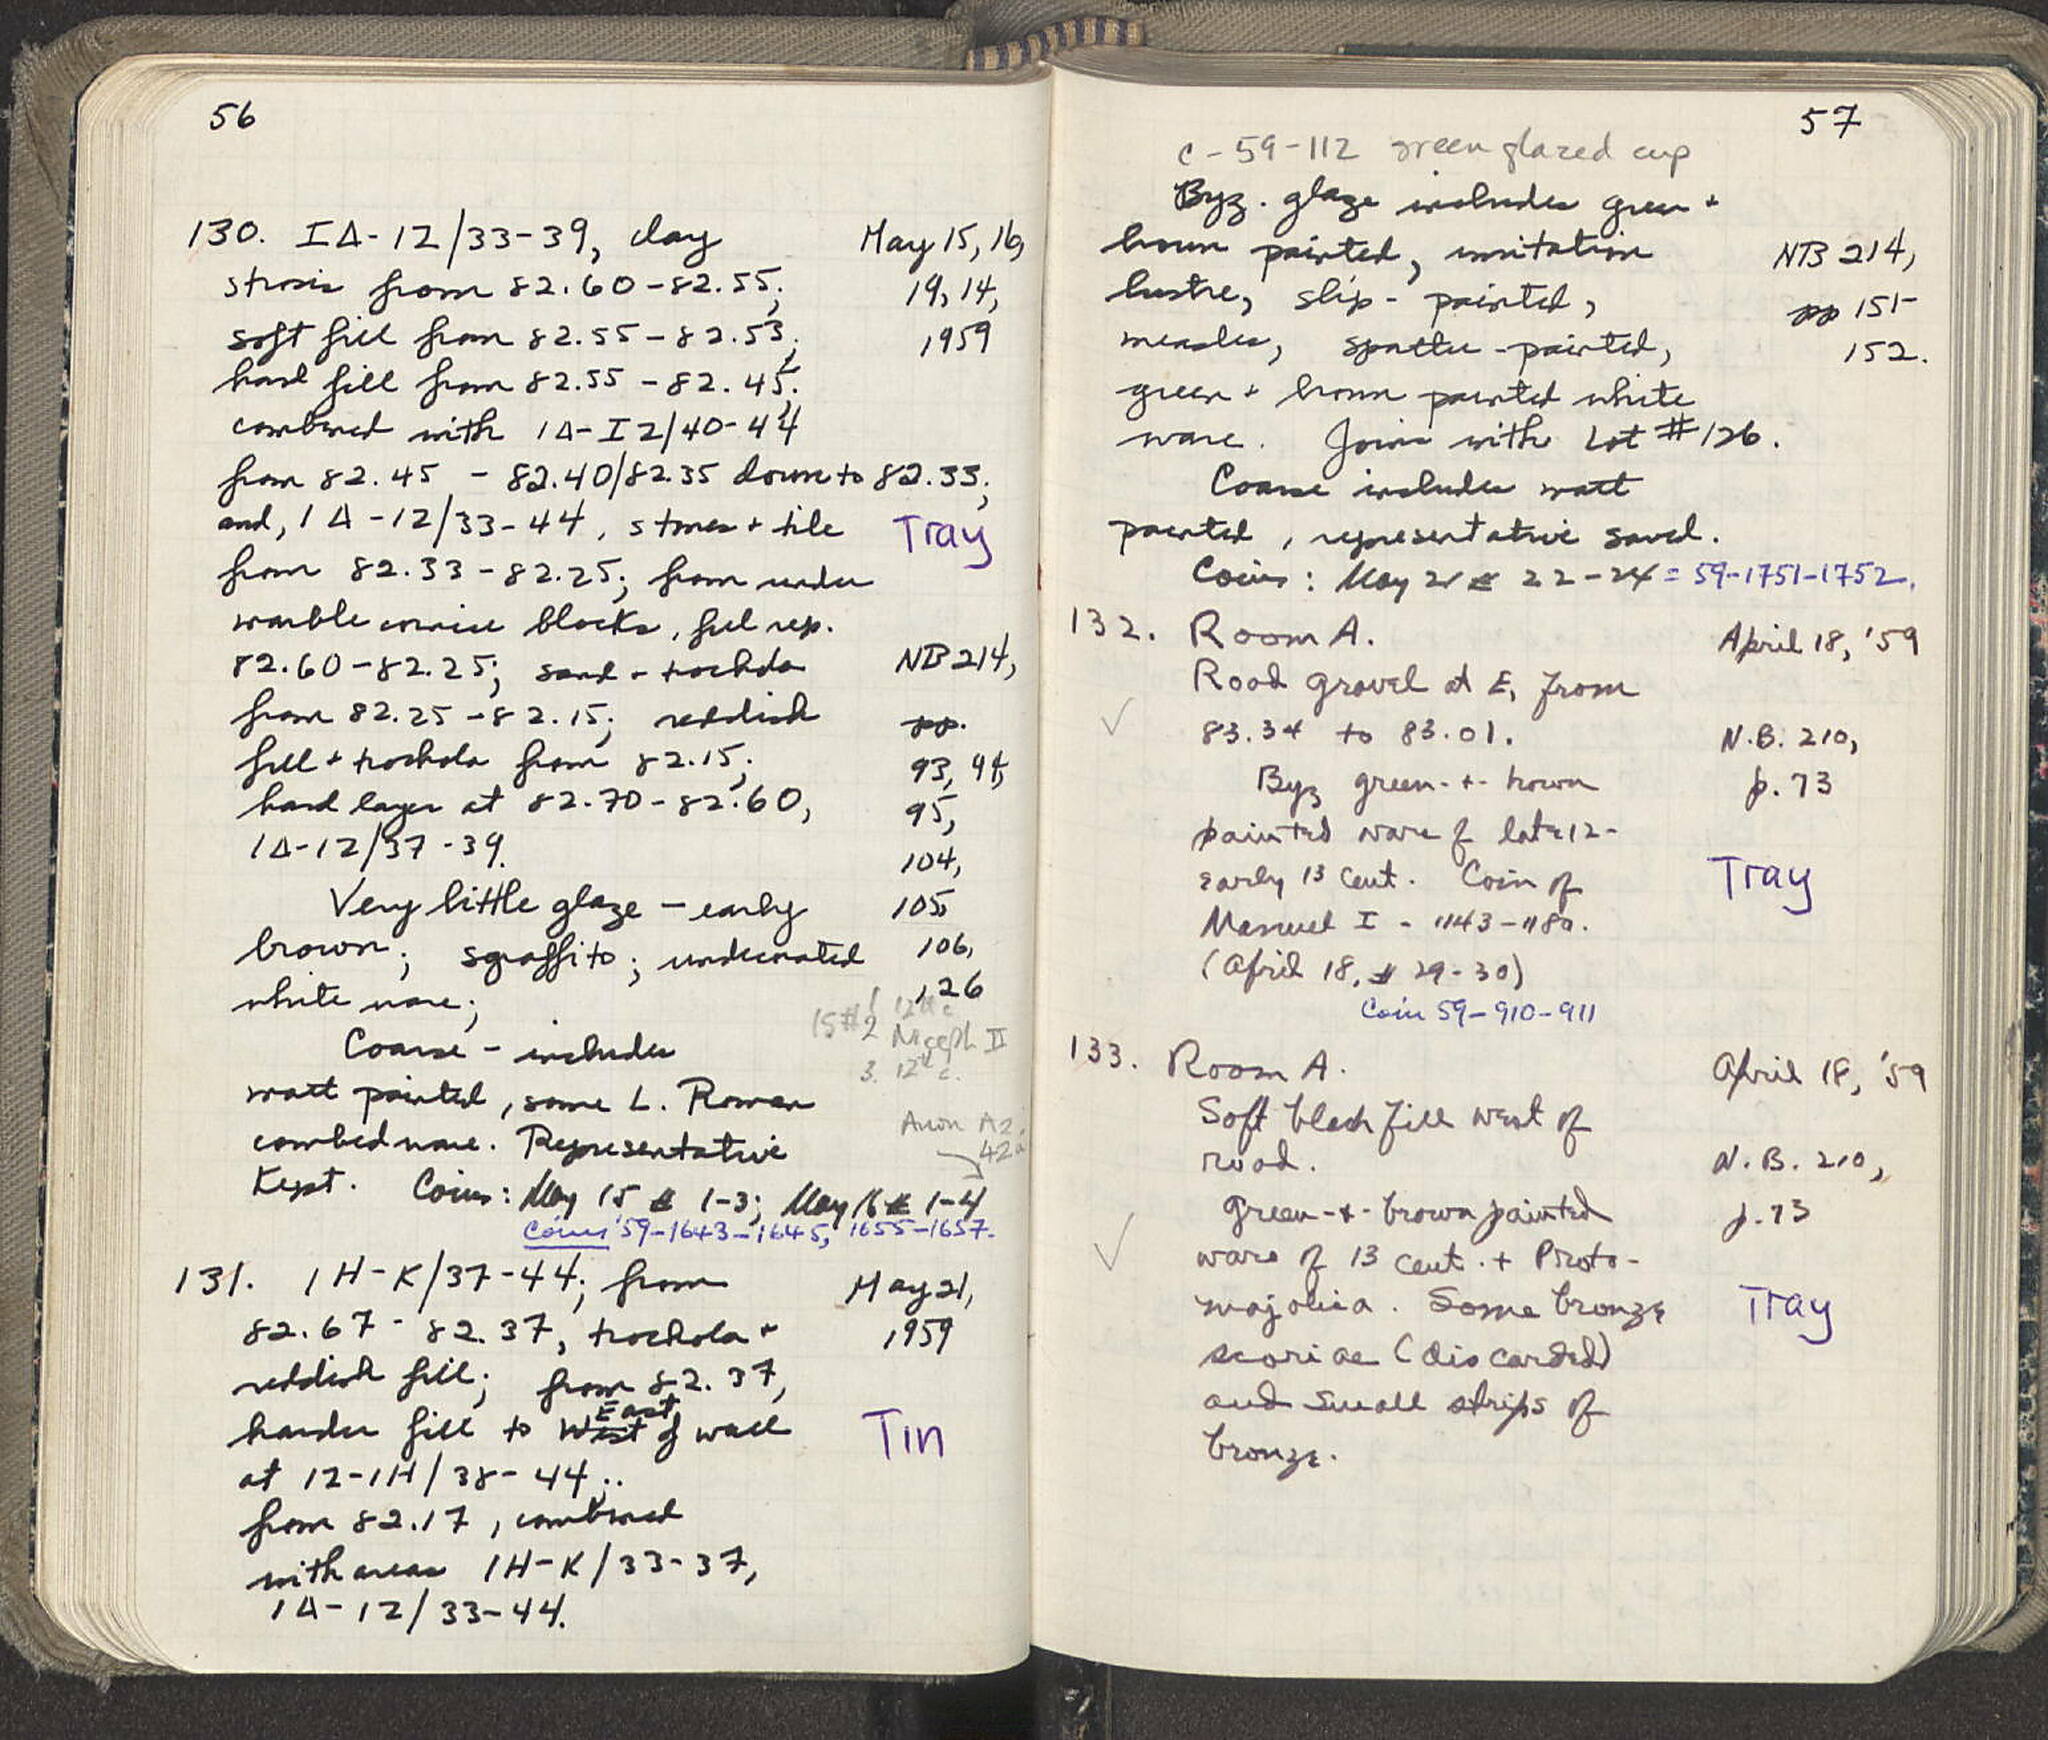 56
130. IΔ-12/33-39, clay
May 15, 16,
strosis from 82.60-82.55;
19, 14,
soft fill from 82.55-82.53;
1959
hard fill from 82.55-82.45;
combined with 1Δ-I2/40-44
from 82.45 - 82.40/82.35 down to 82.33;
and, 1Δ-12/33-44, stones + tile
Tray
from 82.33-82.25; from under
marble cornice blocks, fill rep.
82.60-82.25; sand + trochola
NB 214,
from 82.25-82.15; reddish
pp.
fill + trochola from 82.15;
93, 94,
hard layer at 82.70-82.60,
95,
1Δ-12/37-39.
104,
Very little glaze - early
105
brown; sgraffito; undecorated
106,
white ware;
126
15#
1 12th c
2 Niceph II
3. 12th c.
Coarse - includes
matt painted, some L. Roman
Anon A2.
combed ware. Representative
42
Kept. Coins: May 15 # 1-3; May 16 # 1-4
Coins 59-1643-1645, 1655-1657.
131. 1H-K/37-44; from
May 21,
82.67-82.37, trochola +
1959
reddish fill; from 82.37,
East
harder fill to West of wall
Tin
at 12-1H/38-44;.
from 82.17, combined
with areas 1H-K/33-37,
1Δ-12/33-44.
57
C-59-112 green glazed cup
Byz. glaze includes green +
brown painted, imitation
NB 214,
lustre, slip-painted,
pp 151-
measles, spatter-painted,
152.
green + brown painted white
ware. Joins with Lot #126.
Coarse includes matt
painted, representative saved.
Coins: May 21 # 22-24 = 59-1751-1752.
132. Room A.
April 18, '59
Road gravel at E, from
83.34 to 83.01.
N.B. 210,
Byz green-+-brown
p. 73
painted ware of late 12-
early 13 cent. Coin of
Tray
Manuel I - 1143-1180.
(April 18, # 29-30)
Coin 59-910-911
133. Room A.
April 18, '59
Soft black fill west of
road.
N.B. 210,
Green-+-brown painted
p. 73
ware of 13 cent. + Proto-
majolica. Some bronze
Tray
scoriae (discarded)
and small strips of
bronze.